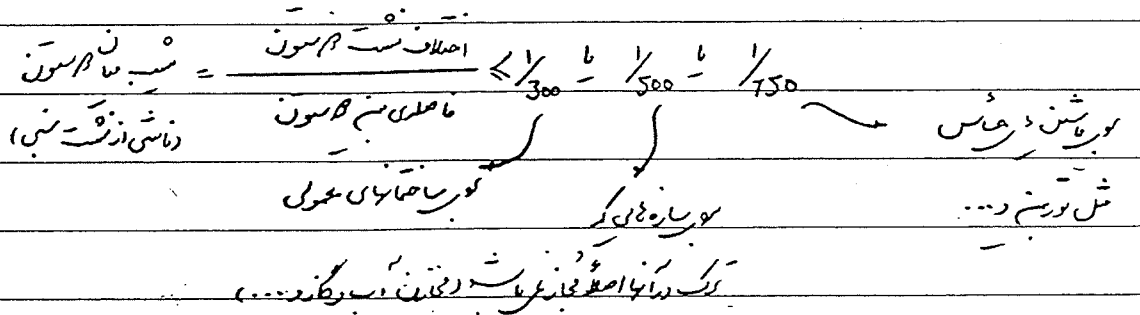 شیب میان دو ستون = اختلاف نشست دو ستون / فاصله‌ی بین دو ستون ≤ 1/300 یا 1/500 یا 1/750
(ناشی از نشست نسبی)
برای ماشین‌های حساس
مثل توربین و ...
برای ساختمانهای معمولی
برای سازه‌هایی که
ترک در آنها اصلاً مجاز نمی‌باشد (مخازن آب و گاز و ...)